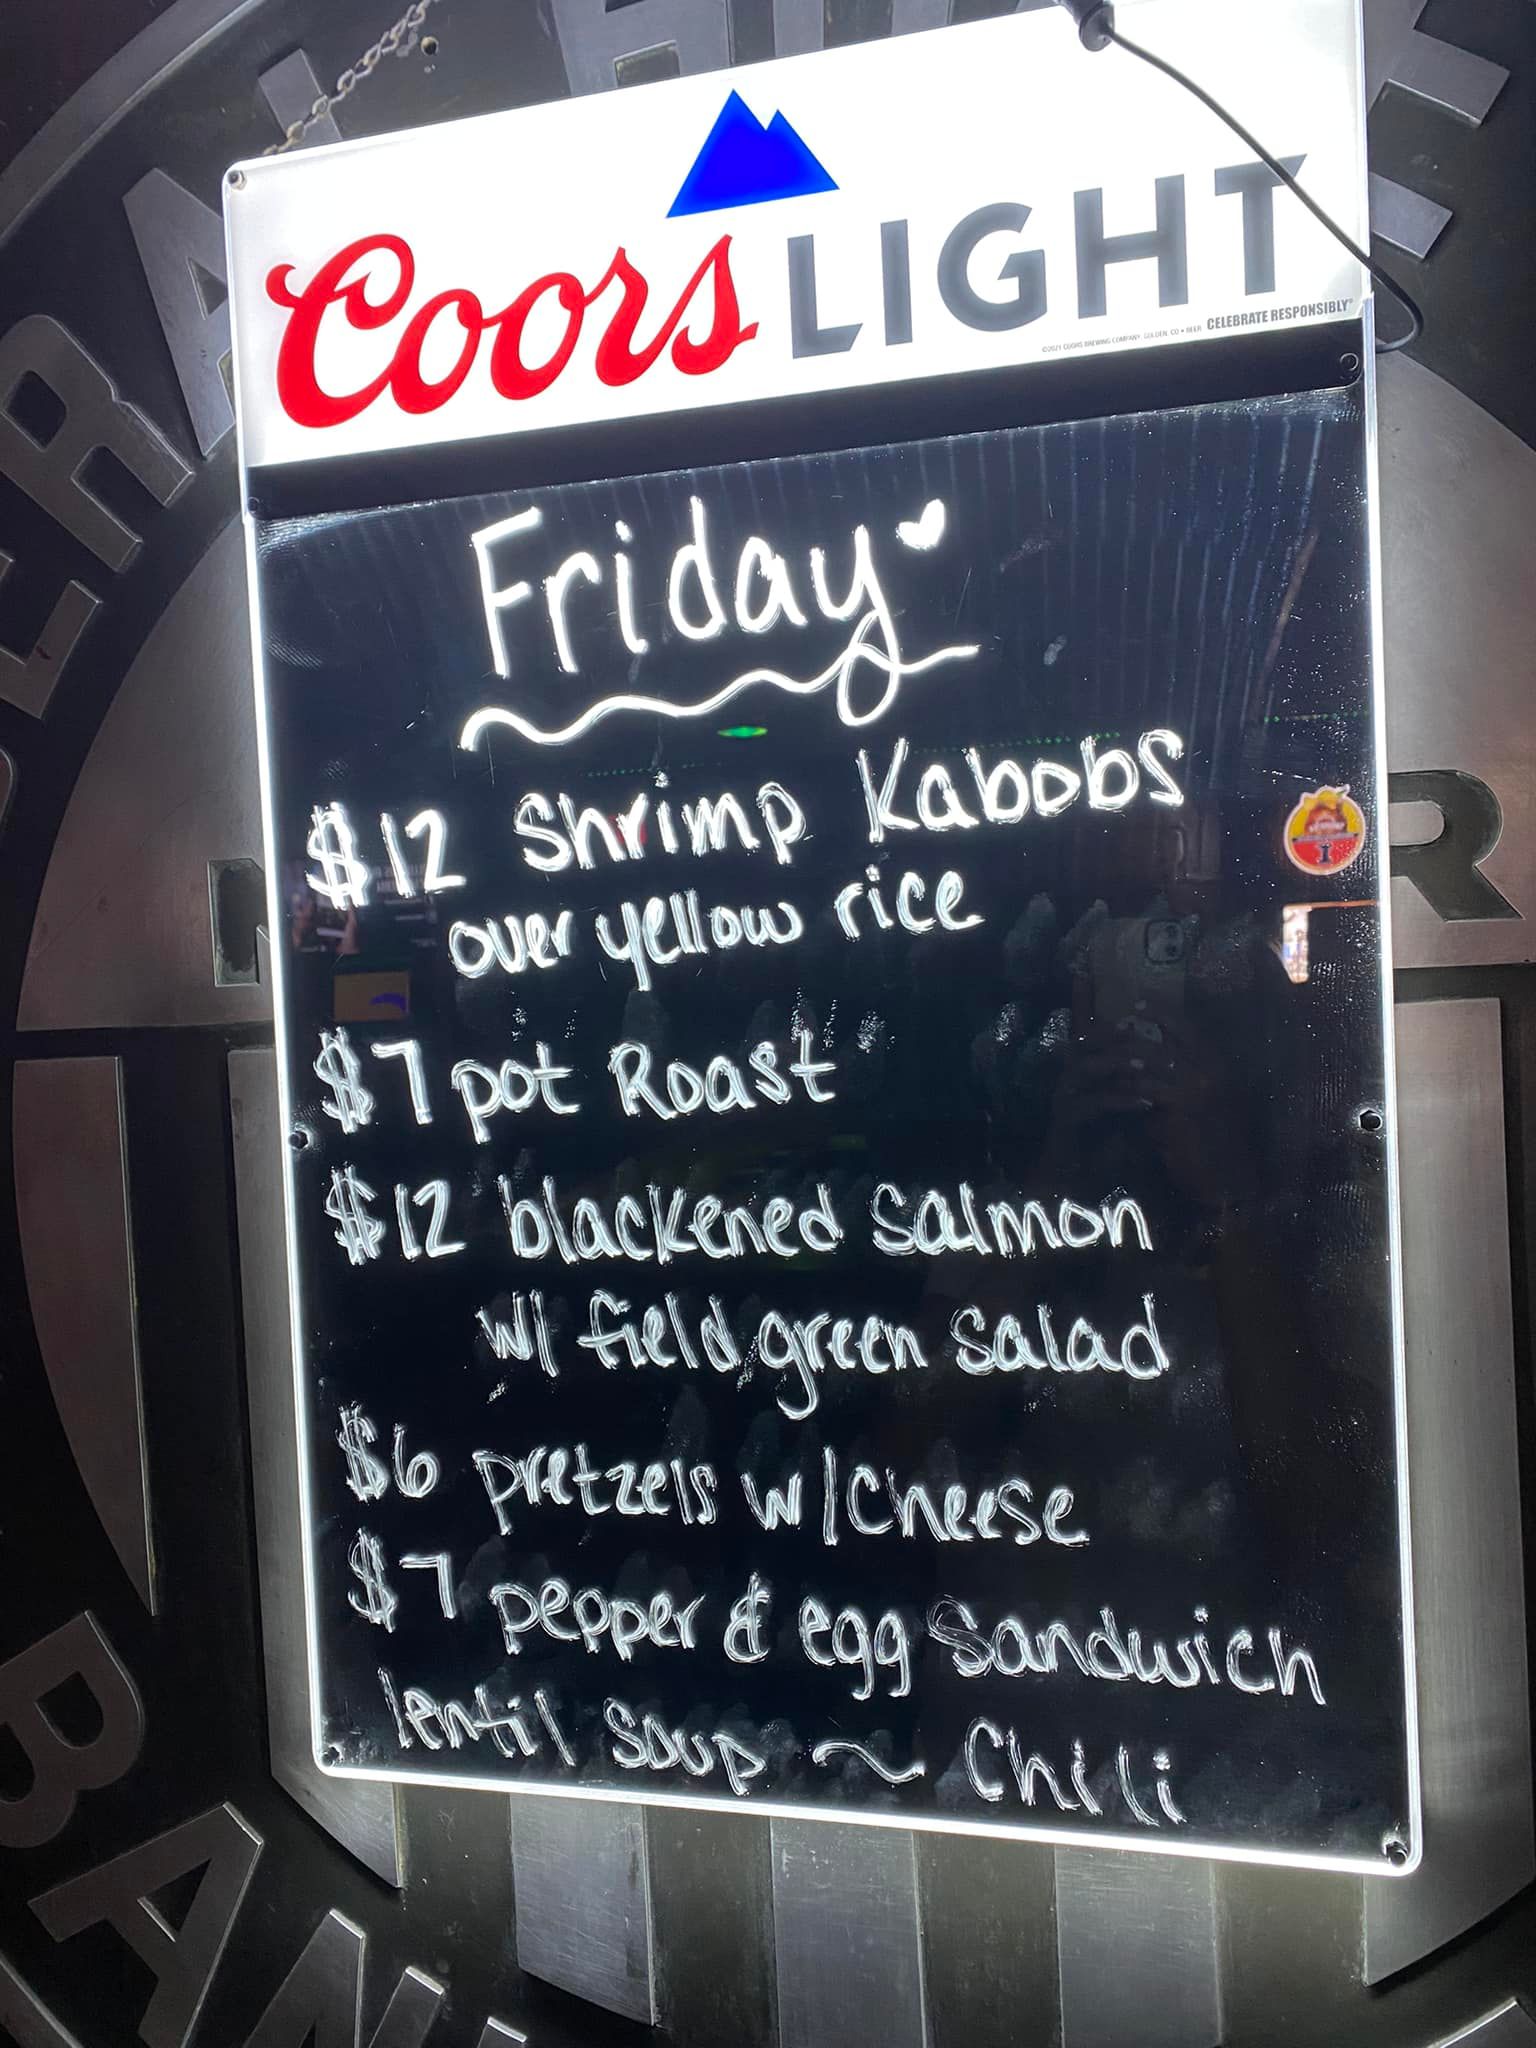 Coors LIGHT
©2021 COORS BREWING COMPANY, GOLDEN, CO • BEER CELEBRATE RESPONSIBLY®
Friday
$12 Shrimp Kabobs
over yellow rice
$7 pot Roast
$12 blackened Salmon
w/ field green Salad
$6 pretzels w/Cheese
$7 pepper & egg Sandwich
lentil soup ~ Chili
ERAL
R
BAN